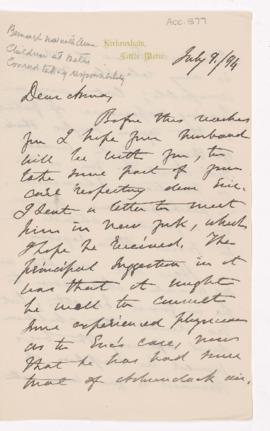 ACC. 877
Bernard
Children at Metis
Consul taking responsibility
Kirkmichael,
Little Metis.
July 9./94
Dear Anna,
Before this reaches
you I hope your husband
will be with you, to
take some part of your
care respecting dear Eric.
I sent a letter to meet
him in New York, which
I hope he received. The
principal suggestion in it
was that it might
be well to consult
some experienced physician
as to Eric's case, now
that he has had some
trial of Adirondack air.